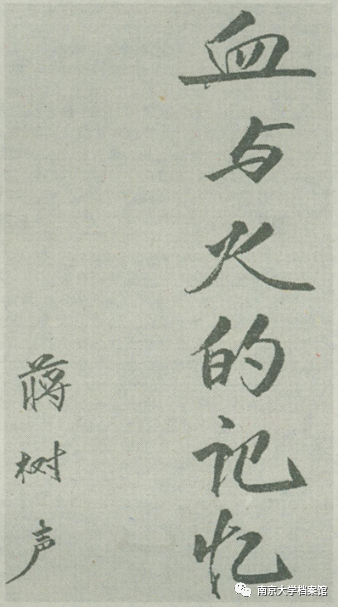 血与火的记忆
蒋树声
南京大学档案馆